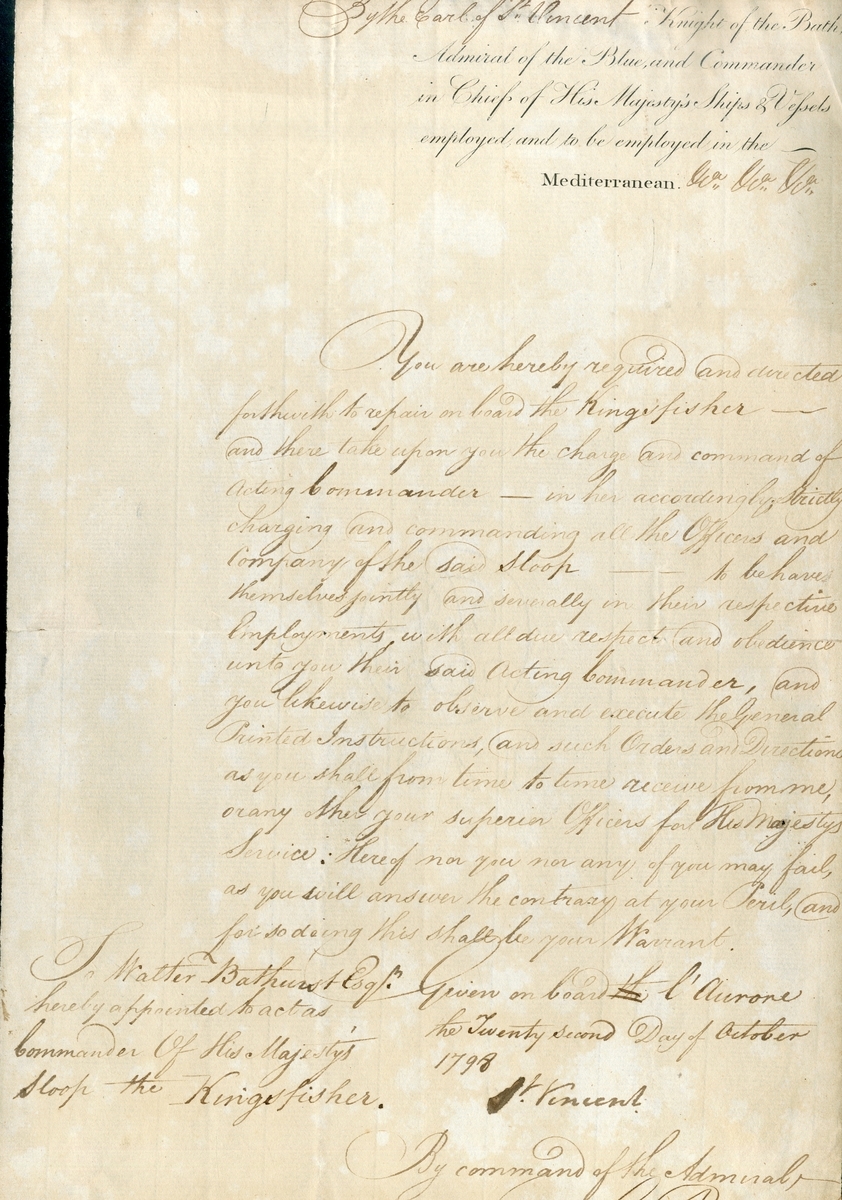 By the Earl of St. Vincent Knight of the Bath
Admiral of the Blue, and Commander
in Chief of His Majesty's Ships & Vessels
employed, and to be employed in the —
Mediterranean. &ca. &ca. &ca.
You are hereby required and directed
forthwith to repair on board the Kingsfisher —
and there take upon you the charge and command of
Acting Commander — in her accordingly, strictly
charging and commanding all the Officers and
Company of the said Sloop — — to behave
themselves jointly and severally in their respective
Employments, with all due respect and obedience
unto you their said Acting Commander, and
you likewise to observe and execute the General
Printed Instructions, and such Orders and Directions
as you shall from time to time receive from me,
or any other your superior Officers for His Majestys
Service: Hereof nor you nor any of you may fail,
as you will answer the contrary at your Peril, and
for so doing this shall be your Warrant.
To Walter Bathurst Esqr.
hereby appointed to act as
Commander Of His Majesty's
Sloop the Kingsfisher.
Given on board the l'Aurore
he Twenty second Day of October
1798
St. Vincent
By command of the Admiral,